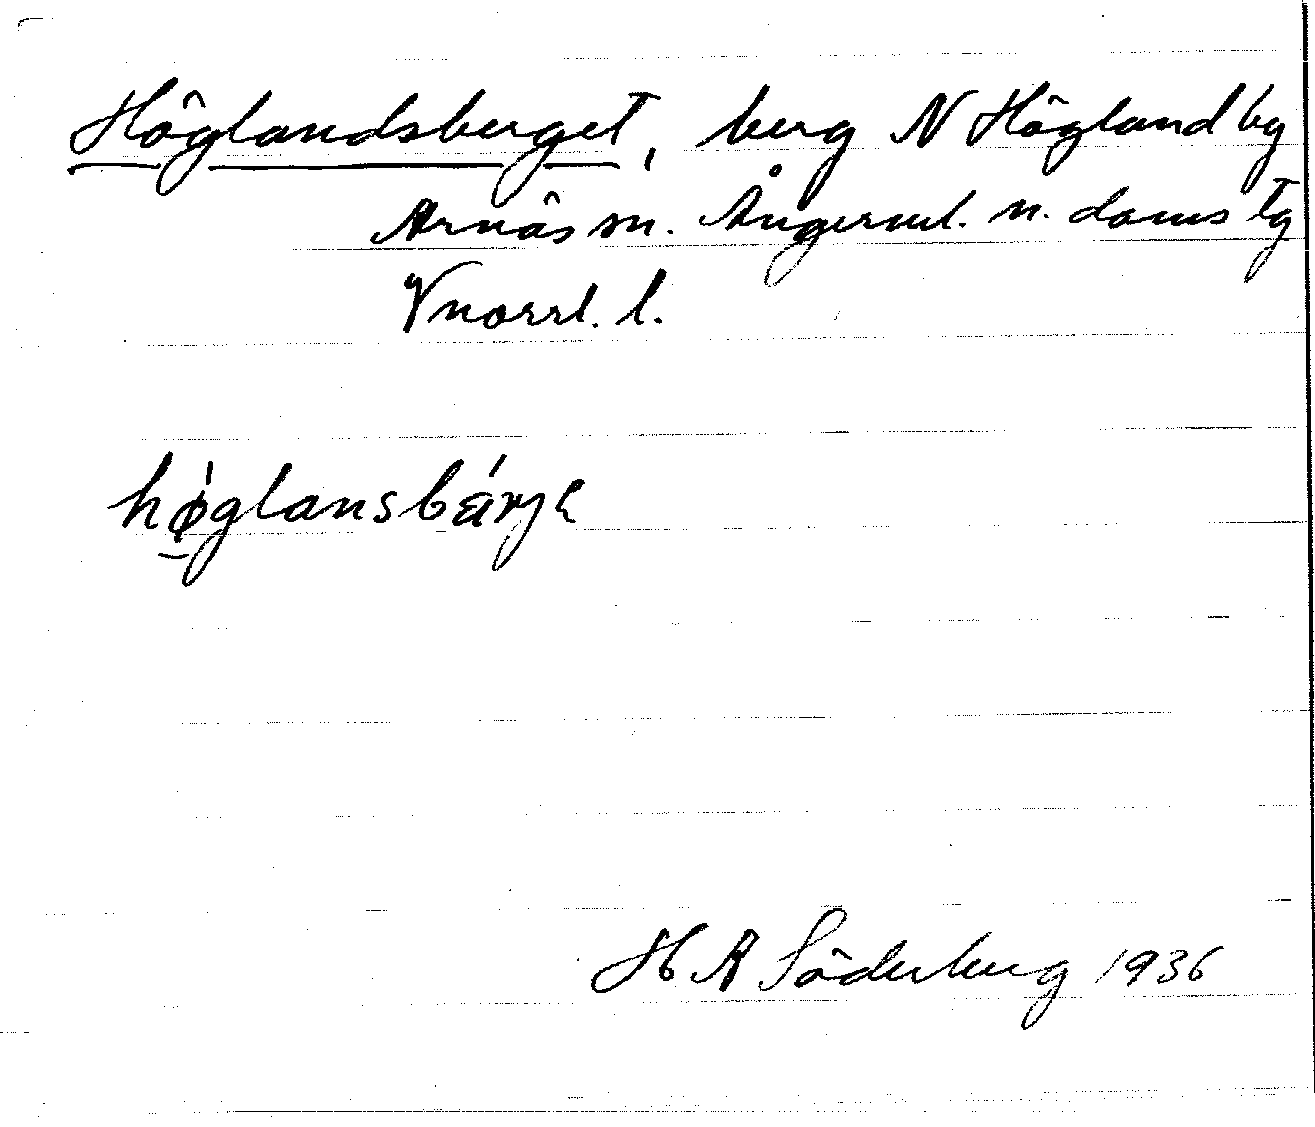 Höglandsberget, berg N Högland by
Arnäs sn. Ångerml. n. doms tg
Vnorrl. l.
hø̀glansbárjə
H A Söderberg 1936